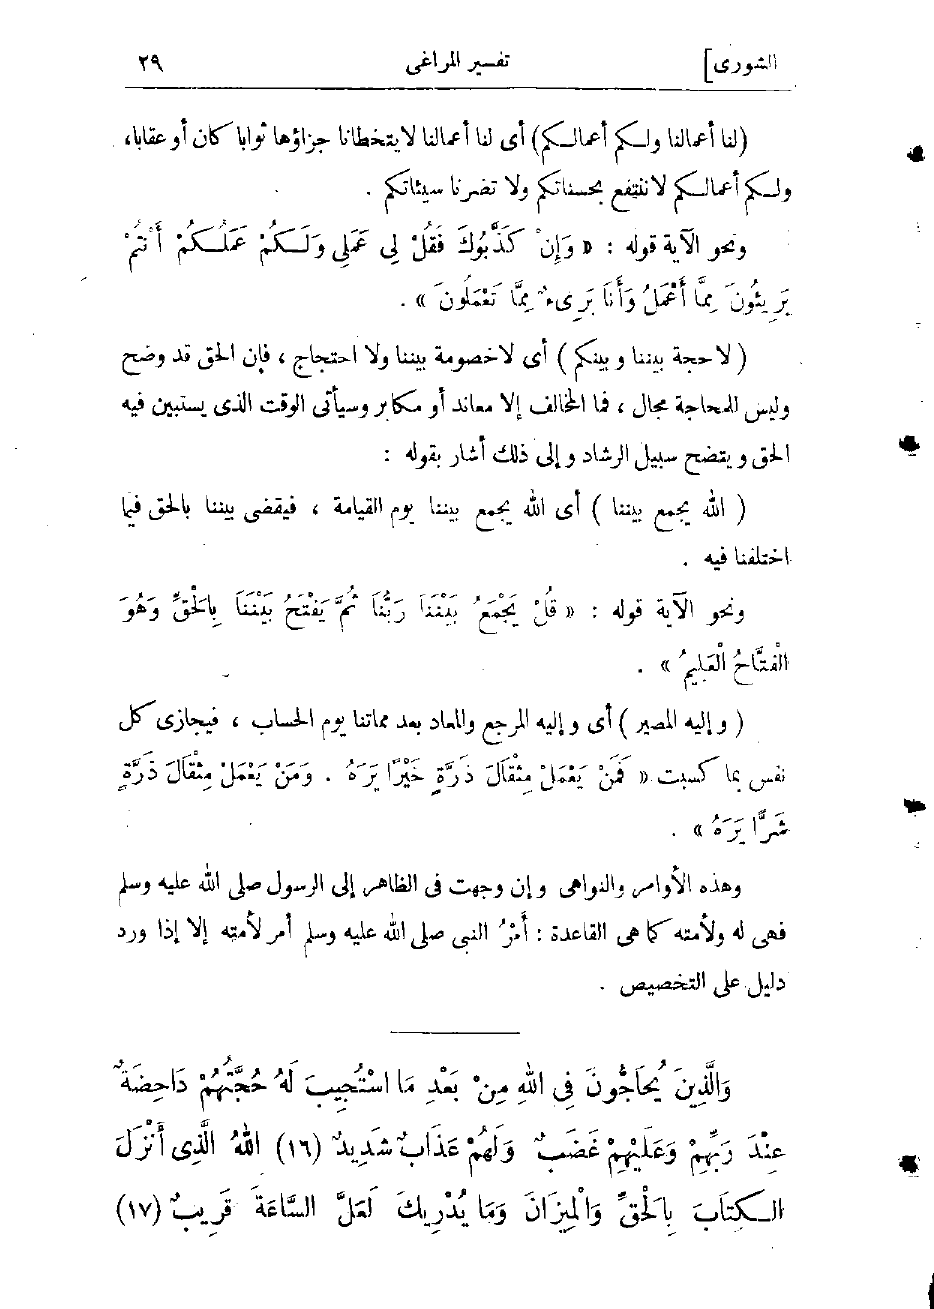 الشورى] تفسير المراغى ٢٩
(لنا أعمالنا ولكم أعمالكم) أى لنا أعمالنا لا يتخطانا جزاؤها ثوابا كان أو عقابا،
ولكم أعمالكم لا ننتفع بحسناتكم ولا تضرنا سيئاتكم .
ونحو الآية قوله : « وَإِنْ كَذَّبُوكَ فَقُلْ لِى عَمَلِى وَلَكُمْ عَمَلُكُمْ أَنْتُمْ
بَرِيئُونَ مِمَّا أَعْمَلُ وَأَنَا بَرِىءٌ مِمَّا تَعْمَلُونَ » .
( لا حجة بيننا وبينكم ) أى لا خصومة بيننا ولا احتجاج ، فإن الحق قد وضح
وليس للمحاجة مجال ، فما المخالف إلا معاند أو مكابر وسيأتى الوقت الذى يستبين فيه
الحق ويتضح سبيل الرشاد وإلى ذلك أشار بقوله :
( الله يجمع بيننا ) أى الله يجمع بيننا يوم القيامة ، فيقضى بيننا بالحق فيما
اختلفنا فيه .
ونحو الآية قوله : « قُلْ يَجْمَعُ بَيْنَنَا رَبُّنَا ثُمَّ يَفْتَحُ بَيْنَنَا بِالْحَقِّ وَهُوَ
الْفَتَّاحُ الْعَلِيمُ » .
( وإليه المصير ) أى وإليه المرجع والمعاد بعد مماتنا يوم الحساب ، فيجازى كل
نفس بما كسبت « فَمَنْ يَعْمَلْ مِثْقَالَ ذَرَّةٍ خَيْرًا يَرَهُ . وَمَنْ يَعْمَلْ مِثْقَالَ ذَرَّةٍ
شَرًّا يَرَهُ » .
وهذه الأوامر والنواهى وإن وجهت فى الظاهر إلى الرسول صلى الله عليه وسلم
فهى له ولأمته كما هى القاعدة : أَمْرُ النبى صلى الله عليه وسلم أمر لأمته إلا إذا ورد
دليل على التخصيص .
وَالَّذِينَ يُحَاجُّونَ فِى اللهِ مِنْ بَعْدِ مَا اسْتُجِيبَ لَهُ حُجَّتُهُمْ دَاحِضَةٌ
عِنْدَ رَبِّهِمْ وَعَلَيْهِمْ غَضَبٌ وَلَهُمْ عَذَابٌ شَدِيدٌ (١٦) اللهُ الَّذِى أَنْزَلَ
الْكِتَابَ بِالْحَقِّ وَالْمِيزَانَ وَمَا يُدْرِيكَ لَعَلَّ السَّاعَةَ قَرِيبٌ (١٧)